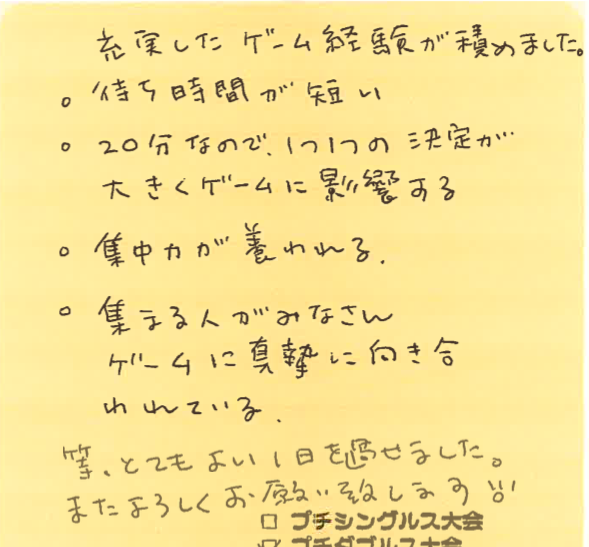 充実した ゲーム経験が積めました。
○ 待ち時間が短い
○ 20分なので、1つ1つの決定が
大きくゲームに影響する
○ 集中力が養われる.
○ 集まる人がみなさん
ゲームに真摯に向き合
われている.
等、とてもよい1日を過せました。
またよろしくお願い致します
□ プチシングルス大会
☑ プチダブルス大会